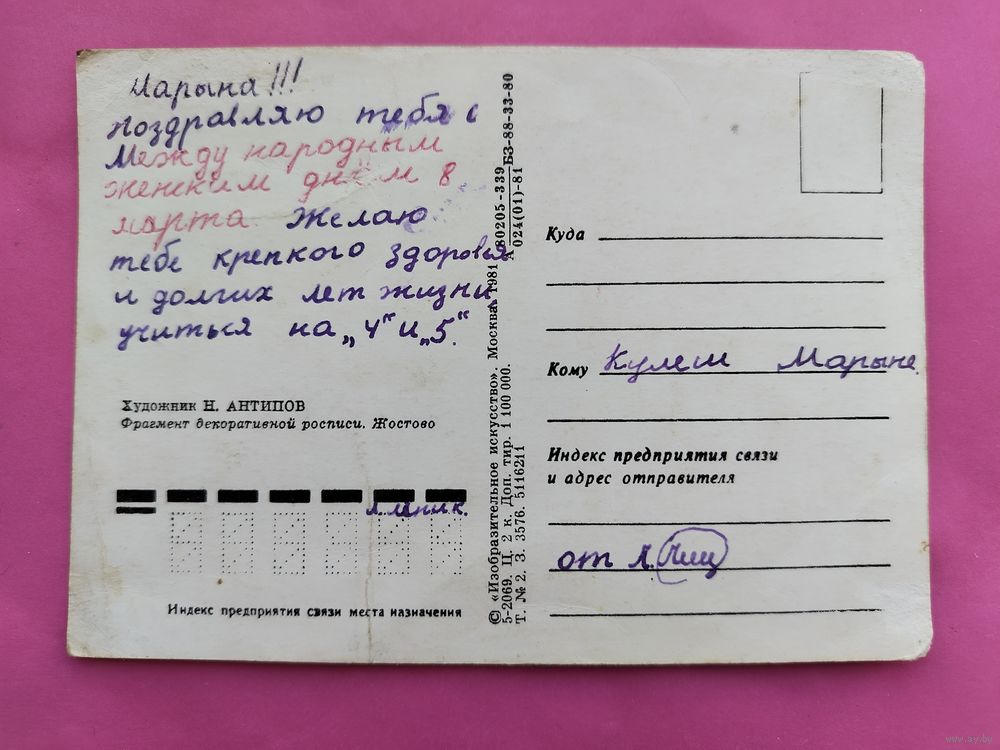 Марына!!!
поздравляю тебя с
Между народным
женским днём 8
марта. Желаю
тебе крепкого здоровья
и долгих лет жизни
учиться на „4" и „5".
Художник Н. АНТИПОВ
Фрагмент декоративной росписи. Жостово
Индекс предприятия связи места назначения
© «Изобразительное искусство». Москва. 1981
5-2069. Ц. 2 к. Доп. тир. 1 100 000.
Т. № 2. З. 3576. 5116211
А
80205-339
024(01)-81
БЗ-88-33-80
Куда
Кому Кулеш Марыне
Индекс предприятия связи
и адрес отправителя
от Л.
www.ay.by